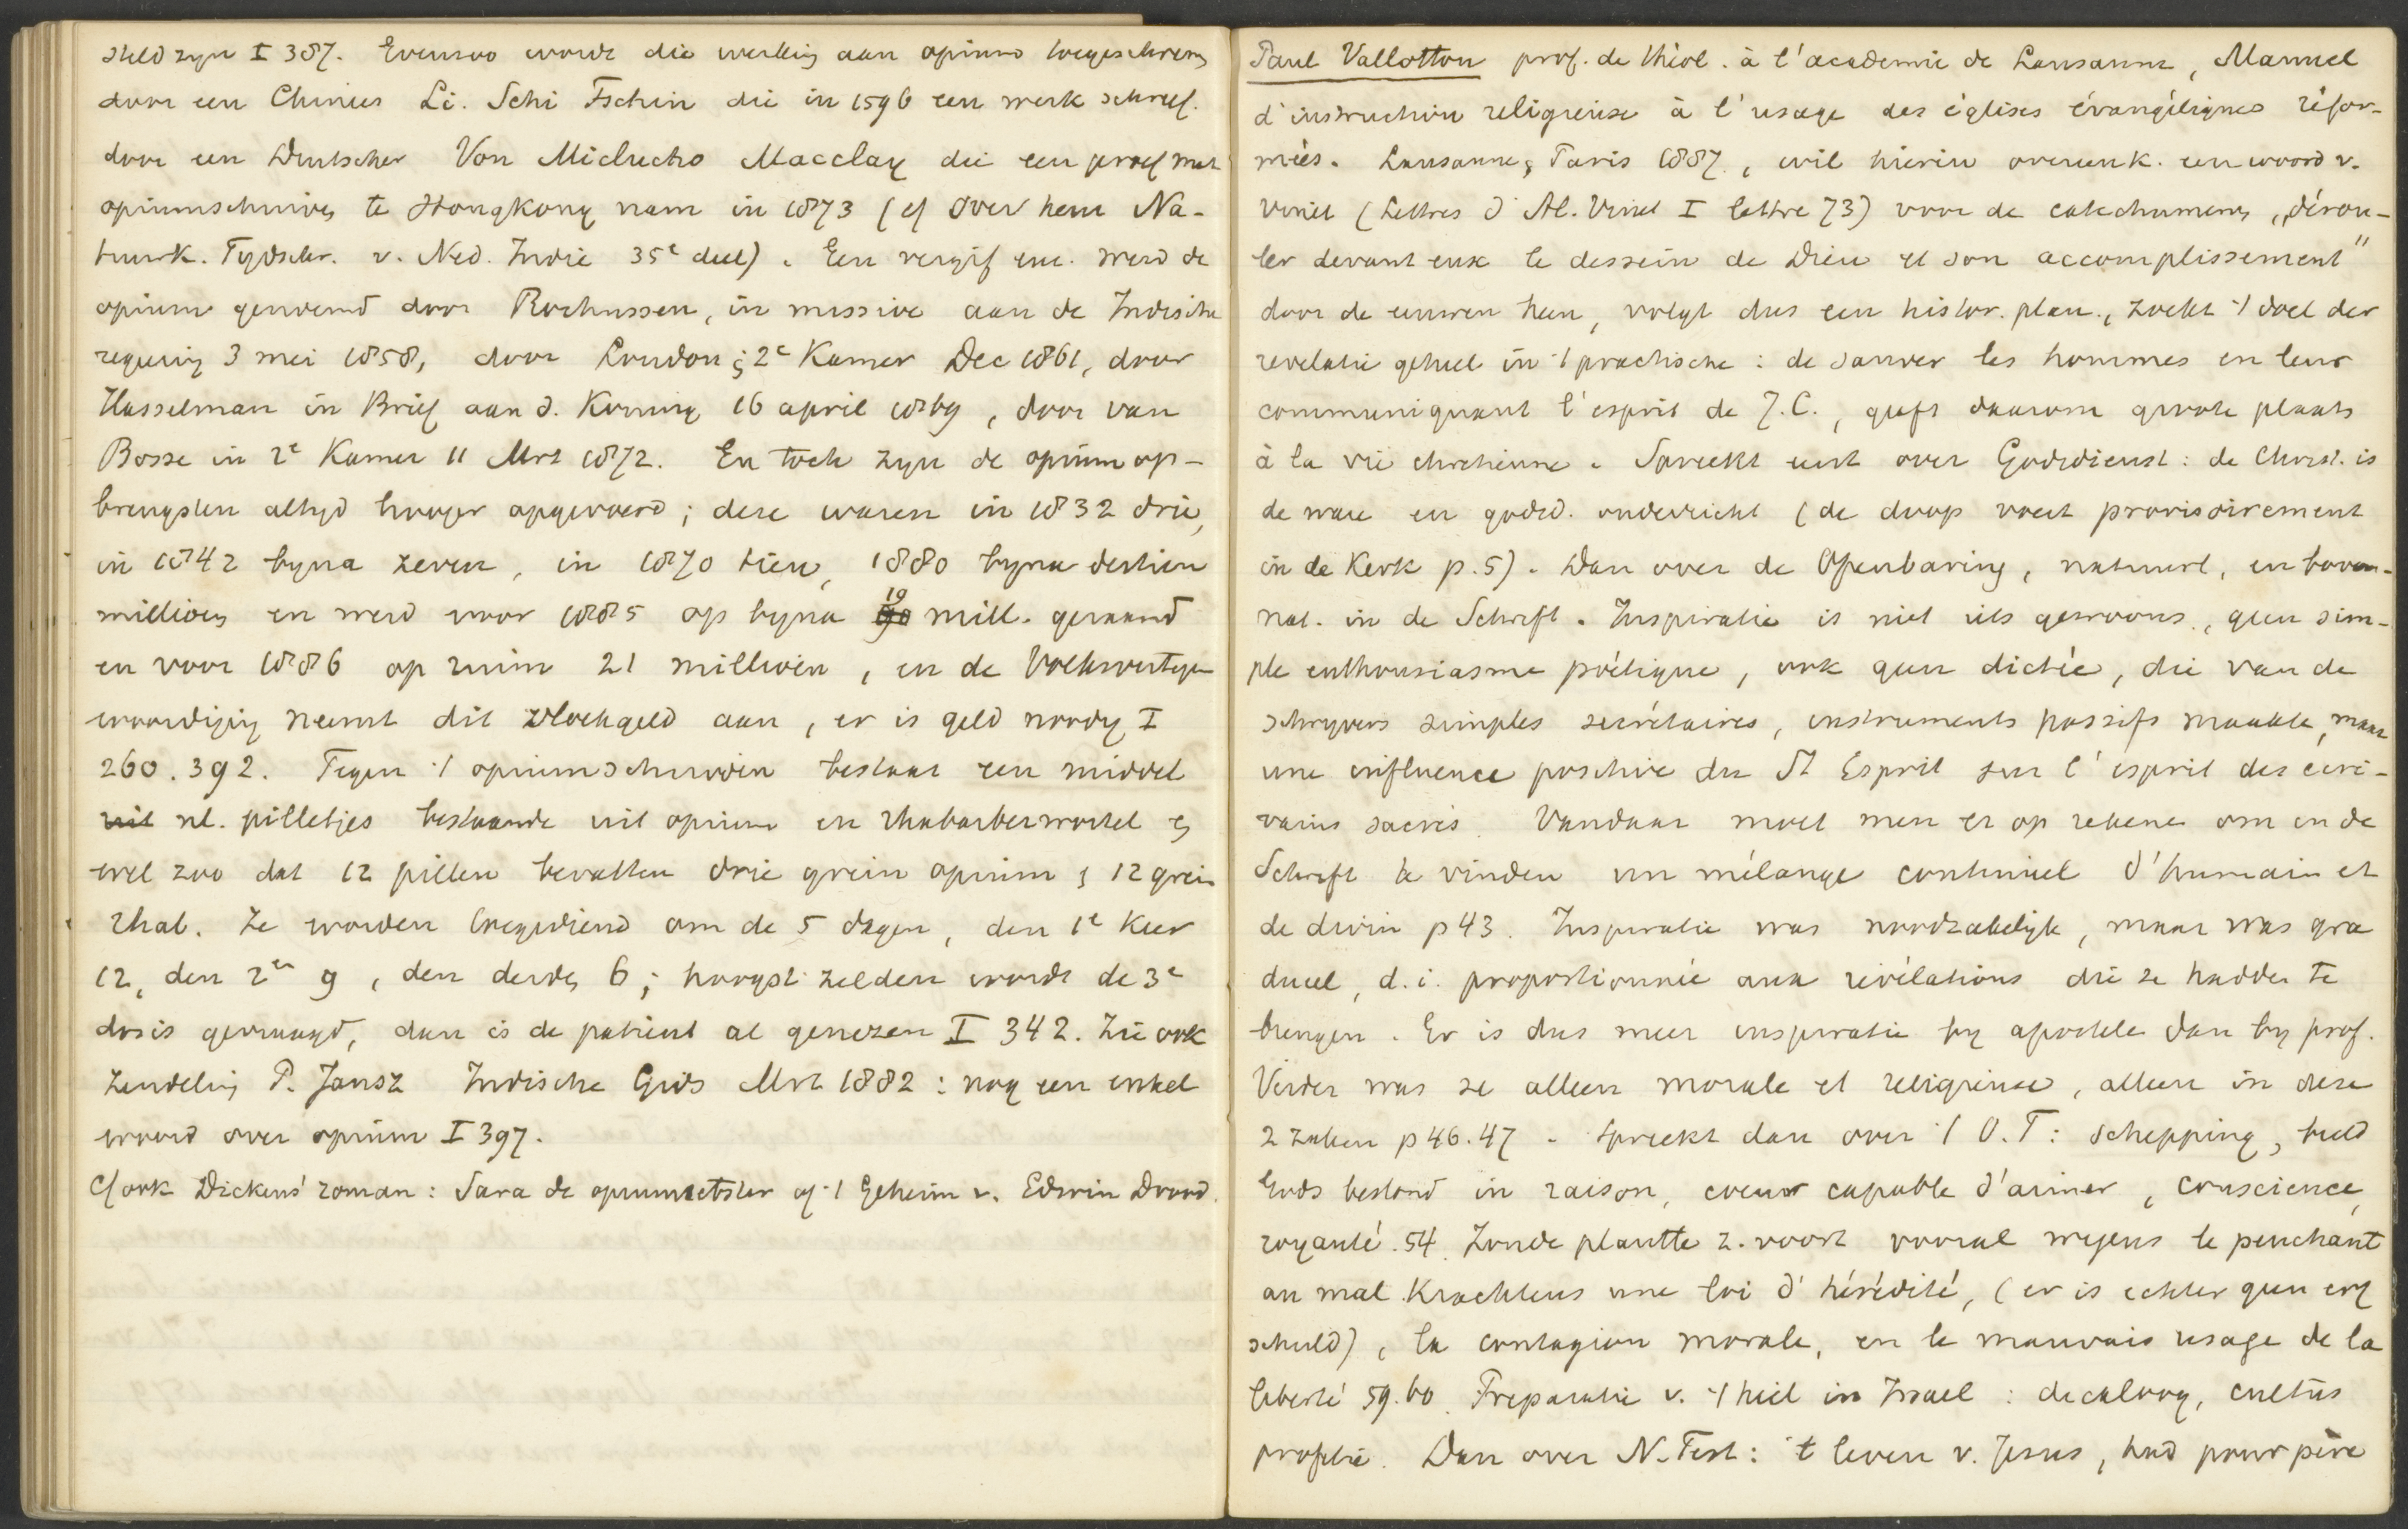 steld zyn I 387. Evenzoo wordt die werking aan opium toegeschreven
door een Chinees Li. Schi Tschin die in 1596 een werk schreef.
door een Duitscher Von Miclucho Macclay die een proef met
opiumschuiven te Hongkong nam in 1873 (cf over hem Na-
tuurk. Tydschr. v. Ned. Indie 35e deel). Een vergif enz. werd de
opium genoemd door Rochussen, in missive aan de Indische
regering 3 mei 1858, door Loudon i/ 2e Kamer Dec 1861, door
Hasselman in Brief aan d. Koning 16 april 1869, door van
Bosse in 2e Kamer 11 Mrt 1872. En toch zyn de opium op-
brengsten altyd hooger opgevoerd; deze waren in 1832 drie,
in 1842 byna zeven, in 1870 tien, 1880 byna dertien
millioen en werd voor 1885 op byna 19 mill. geraamd
en voor 1886 op ruim 21 millioen, en de Volksvertegen
woordiging neemt dit vloekgeld aan, er is geld noodig I
260. 392. Tegen 't opiumschuiven bestaat een middel
uit nl. pilletjes bestaande uit opium en rhabarberwortel en
wel zoo dat 12 pillen bevatten drie grein opium & 12 grein
rhab. Ze worden toegediend om de 5 dagen, den 1e keer
12, den 2en 9, den derden 6; hoogst zelden wordt de 3e
dosis gevraagd, dan is de patient al genezen I 342. Zie ook
zendeling P. Jansz Indische Gids Mrt 1882: nog een enkel
woord over opium I 397.
Cf ook Dickens' roman: Sara de opiumetster of 't Geheim v. Edwin Drood.
Paul Vallotton prof. de théol. à l'academie de Lausanne, Manuel
d'instruction religieuse à l'usage des églises évangéliques réfor-
mées. Lausanne, Paris 1887., wil hierin overeenk. een woord v.
Vinet (Lettres d'Al. Vinet I lettre 73) voor de catechumenen „dérou-
ler devant eux le dessein de Dieu et son accomplissement"
door de eeuwen heen, volgt dus een histor. plan., zoekt 't doel der
revelatie geheel in 't practische: de sauver les hommes en leur
communiquant l'esprit de J.C., geeft daarom groote plaats
à la vie chretienne. Spreekt eerst over Godsdienst: de Christ. is
de ware en godsd. onderricht (de doop voert provisoirement
in de Kerk p. 5). Dan over de Openbaring, natuurl, en boven-
nat. in de Schrift. Inspiratie is niet iets gewoons, geen sim-
ple enthousiasme poétique, ook geen dictée, die van de
schryvers simples secrétaires, instruments passifs maakte, maar
une influence positive du St Esprit sur l'esprit des écri-
vains sacrés. Vandaar moet men er op rekenen om in de
Schrift te vinden un mélange continuel d'humain et
de divin p 43. Inspiratie was noodzakelijk, maar was gra
dueel, d.i. proportionnée aux révélations die ze hadden te
brengen. Er is dus meer inspiratie by apostelen dan by prof.
Verder was ze alleen morale et religieuse, alleen in deze
2 zaken p 46.47. Spreekt dan over 't O.T: schepping, beeld
Gods bestond in raison, coeur capable d'aimer, conscience,
royauté. 54. Zonde plantte z. voort vooral wegens le penchant
au mal krachtens une loi d'hérédité, (er is echter geen erf
schuld), la contagion morale, en le mauvais usage de la
liberté 59.60. Preparatie v. 't heil in Israel: decaloog, cultus
profetie. Dan over N. Test: 't leven v. Jesus, had pour père